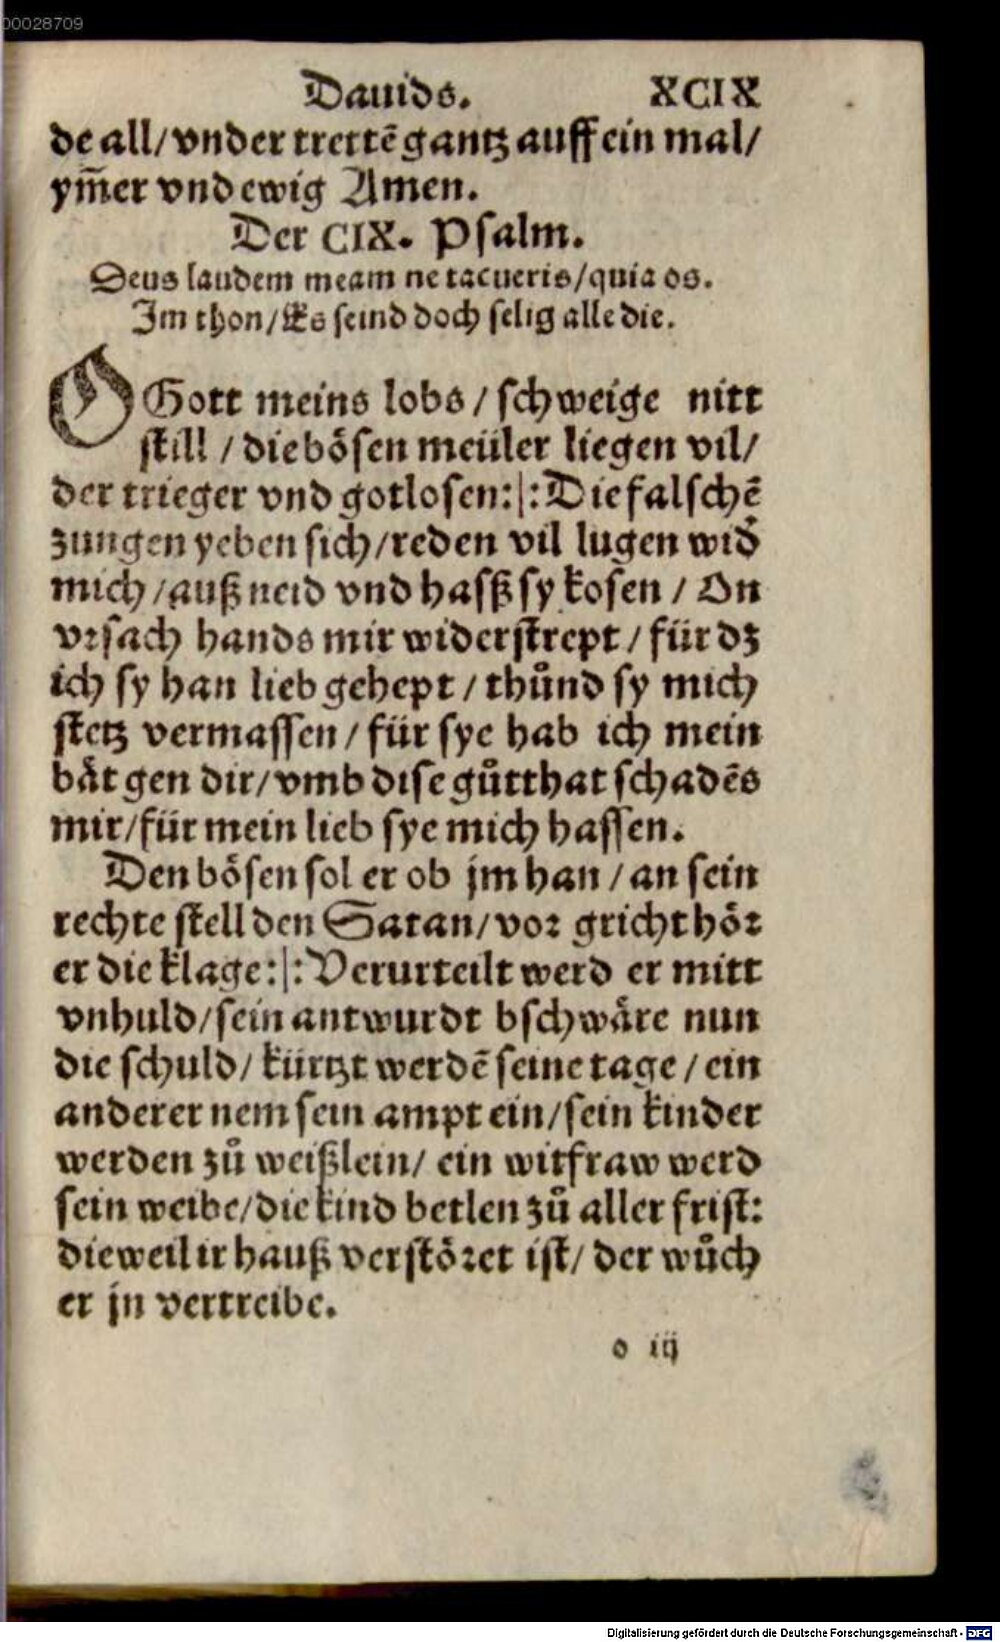 00028709
Dauids. XCIX
de all/vnder trettē gantz auff ein mal/
ym̄er vnd ewig Amen.
Der CIX. Psalm.
Deus laudem meam ne tacueris/quia os.
Im thon/Es seind doch selig alle die.
O Gott meins lobs / schweige nitt
still / die bösen meüler liegen vil/
der trieger vnd gotlosen:|:Die falschē
zungen yeben sich/reden vil lugen wid̄
mich/auß neid vnd hasß sy kosen / On
vrsach hands mir widerstrept / für dz
ich sy han lieb gehept / thůnd sy mich
stetz vermassen / für sye hab ich mein
bät gen dir/vmb dise gůtthat schadēs
mir/für mein lieb sye mich hassen.
Den bösen sol er ob jm han / an sein
rechte stell den Satan/vor gricht hör
er die klage:|:Verurteilt werd er mitt
vnhuld/sein antwurdt bschwäre nun
die schuld/ kürtzt werdē seine tage / ein
anderer nem sein ampt ein/sein kinder
werden zů weißlein/ ein witfraw werd
sein weibe/die kind betlen zů aller frist:
dieweil ir hauß verstöret ist/ der wůch
er jn vertreibe.
o iij
Digitalisierung gefördert durch die Deutsche Forschungsgemeinschaft - DFG